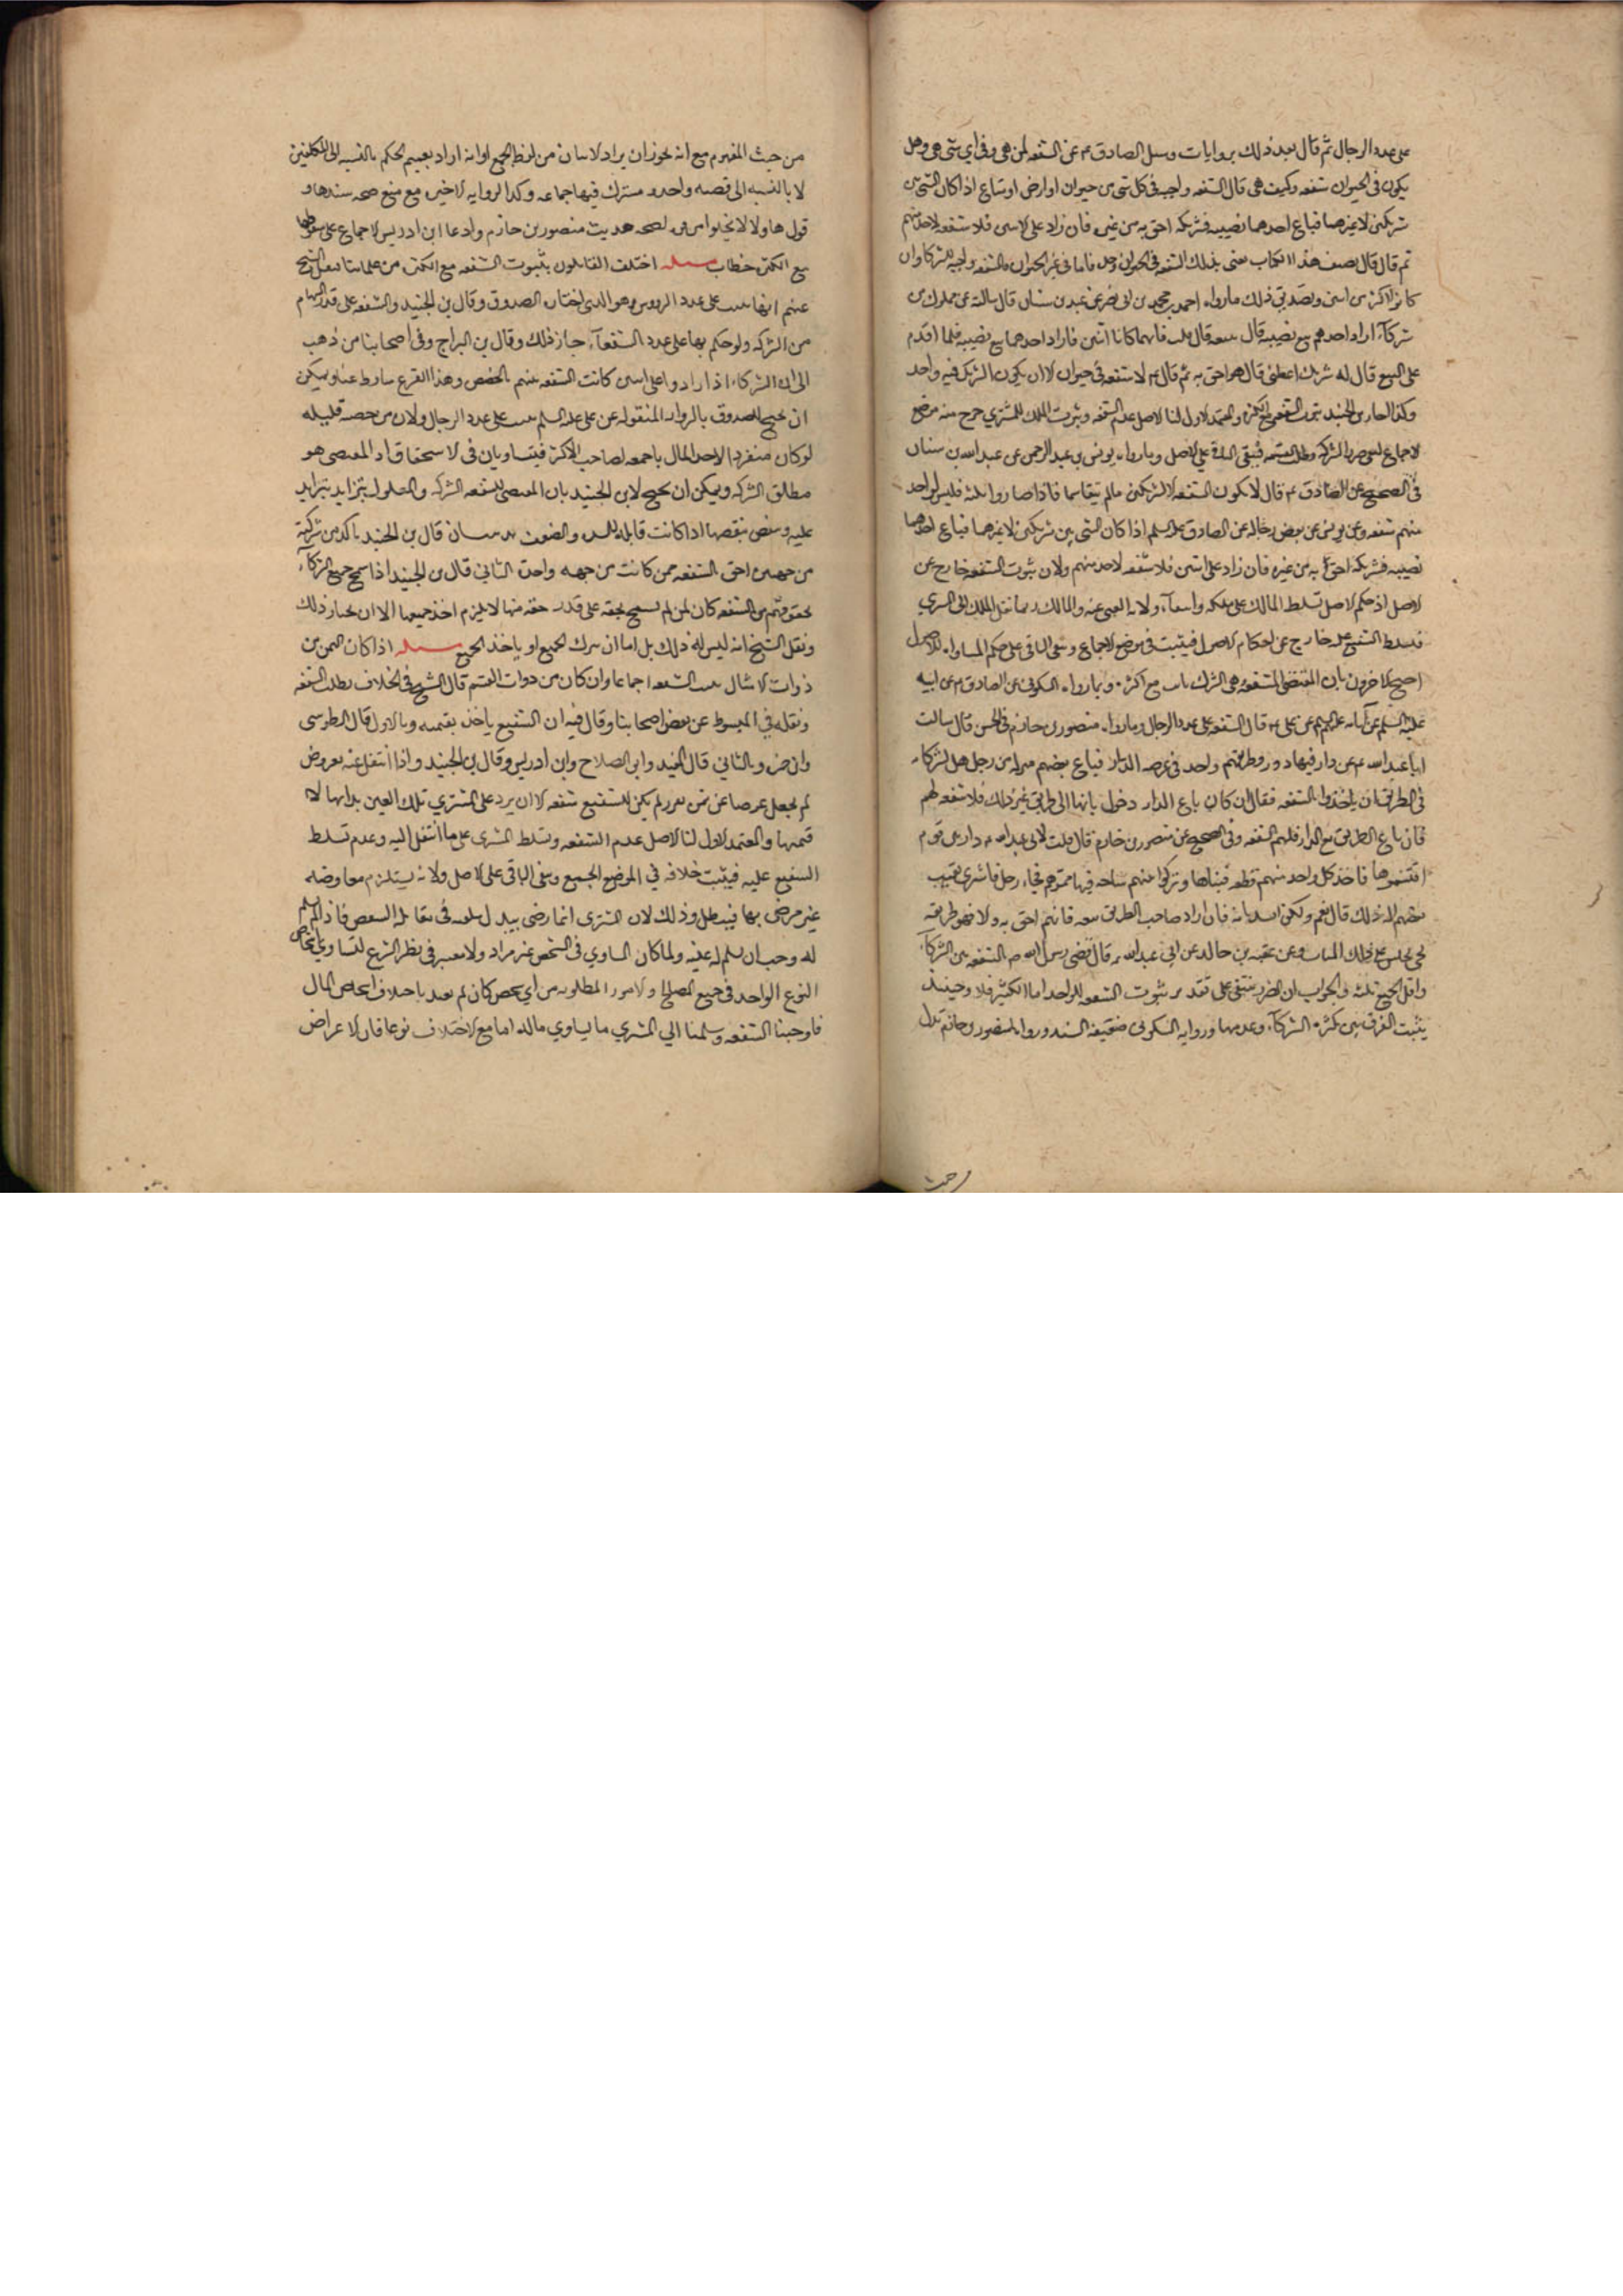 على عدد الرجال ثم قال بعد ذلك بروايات وسئل الصادق ع عن الشفعه لمن هى وفى اى شى هى وهل
يكون فى الحيوان شفعه وكيف هى قال الشفعه واجبه فى كل شى من حيوان او ارض او متاع اذا كان الشى بين
شريكين لا غيرهما فباع احدهما نصيبه فشريكه احق به من غيره فان زاد على الاثنين فلا شفعه لاحد منهم
ثم قال قال مصنف هذا الكتاب يعنى بذلك الشفعه فى الحيوان وحده فاما فى غير الحيوان فالشفعه واجبه للشركا وان
كانوا اكثر من اثنين وتصديق ذلك ما رواه احمد بن محمد بن ابى نصر عن عبد الله بن سنان قال سالته عن مملوك بين
شركآء اراد احدهم بيع نصيبه قال يبيعه قال قلت فانهما كانا اثنين فاراد احدهما بيع نصيبه فلما اقدم
على البيع قال له شريكه اعطنى قال هو احق به ثم قال ع لا شفعه فى حيوان الا ان يكون الشريك فيه واحد
وكذا اختار بن الجنيد ثبوت الشفعه مع الكثره والمعتمد الاول لنا الاصل عدم الشفعه وثبوت الملك للمشترى خرج منه موضع
الاجماع لمعنى ضرر الشركه وطلب القسمه فيبقى الباقى على الاصل وما رواه يونس بن عبد الرحمن عن عبد الله بن سنان
فى الصحيح عن الصادق ع قال لا يكون الشفعه الا لشريكين مالم يتقاسما فاذا صاروا ثلثه فليس لواحد
منهم شفعه وعن يونس عن بعض رجاله عن الصادق عليه السلم اذا كان الشى بين شريكين لا غيرهما فباع احدهما
نصيبه فشريكه احق به من غيره فان زاد على اثنين فلا شفعه لاحد منهم ولان ثبوت الشفعه خارج عن
الاصل اذ حكم الاصل تسلط المالك على ملكه
فتسلط الشفيع عليه خارج عن احكام الاصول فيثبت فى موضع الاجماع وبقى الباقى على حكم المساواه للاصول
احتج الاخرون بان المقتضى للشفعه هى الشركه ثابت مع اكثر وبما رواه السكونى عن الصادق ع عن ابيه
عليه السلم عن آبائه عليهم عن على ع قال الشفعه على عدد الرجال وما رواه منصور بن حازم فى الحسن قال سالت
ابا عبد الله ع عن دار فيها دور وطريقهم واحد فى عرصه الدار فباع بعضهم منزله من رجل هل لشركائه
فى الطريق ان ياخذوا بالشفعه فقال ان كان باع الدار وحول بابها الى طريق غير ذلك فلا شفعه لهم
فان باع الطريق مع الدار فلهم الشفعه وفى الصحيح عن منصور بن حازم قال قلت لابى عبد الله ع دار بين قوم
اقتسموها فاخذ كل واحد منهم قطعه فبناها وتركوا بينهم ساحه فيها ممرهم فجاء رجل فاشترى نصيب
بعضهم اله ذلك قال نعم ولكن يسد بابه فان اراد صاحب الطريق بيعه فانهم احق به والا فهو طريقه
يجى يجلس على ذلك الباب وعن عقبه بن خالد عن ابى عبد الله ع قال قضى رسول الله ص بالشفعه بين الشركآء
واقل الجمع ثلثه والجواب ان الضرر ينتفى على تقدير ثبوت الشفعه للواحد اما الكثير فلا وحينئذ
يثبت الفرق بين كثره الشركآء وعدمها وروايه السكونى ضعيفه السند وروايه منصور بن حازم تدل
من حيث المفهوم مع انه يجوز ان يراد الاثنان من لفظ الجمع او انه اراد تعميم الحكم بالنسبه الى المكلفين
لا بالنسبه الى قضيه واحده مشترك فيها جماعه وكذا الروايه الاخيره مع منع صحه سندها و
قولها ولا لا يخلوا من قوه لصحه حديث منصور بن حازم وادعا ابن ادريس الاجماع على سقوطها
مع الكثره خطاب مسئله اختلف القايلون بثبوت الشفعه مع الكثره من علمائنا فنقل الشيخ
عنهم انها يثبت على عدد الروس وهو الذى اختاره الصدوق وقال بن الجنيد والشفعه على قدر السهام
من الشركه ولو حكم بها على عدد الشفعآء جاز ذلك وقال بن البراج وفى اصحابنا من ذهب
الى ان الشركاء اذا زادوا على اثنين كانت الشفعه بينهم بالحصص وهذا الفرع ساقط عنا ويمكن
ان يحتج للصدوق بالروايه المنقوله عن على عليه السلم يثبت على عدد الرجال ولان من حصته قليله
لو كان منفردا لاخذ المال باجمعه لصاحب الاكثر فيتساويان فى الاستحقاق اذ المقتضى هو
مطلق الشركه ويمكن ان يحتج لابن الجنيد بان المقتضى للشفعه الشركه والمعلول يتزايد بتزايد
عليه وينقص بنقصها اذا كانت قابله للشده والضعف قال بن الجنيد تاكد من شركته
من جهتين احق بالشفعه ممن كانت من جهه واحده الثانى قال بن الجنيد اذا سمح جميع الشركآء
بحقوقهم من الشفعه كان لمن لم يسمح بحقه على قدر حقه منها لا يلزم اخذ جميعها الا ان يختار ذلك
ونقل الشيخ انه ليس له ذلك بل اما ان يترك الجميع او ياخذ الجميع مسئله اذا كان الثمن من
ذوات الامثال يثبت الشفعه اجماعا وان كان من ذوات القيم قال الشيخ فى الخلاف بطلت الشفعه
ونقله فى المبسوط عن بعض اصحابنا وقال فيه ان الشفيع ياخذ بقيمته وبالاول قال الطوسى
وابن حمزه وبالثانى قال المفيد وابو الصلاح وابن ادريس وقال بن الجنيد واذا انتقل عنه بعروض
لم يجعل عوضا عن ثمن مقرر لم يكن للشفيع شفعه الا ان يرد على المشترى تلك العين بذاتها لا
قيمتها والمعتمد الاول لنا الاصل عدم الشفعه وتسلط المشترى على ما انتقل اليه وعدم تسلط
الشفيع عليه فيثبت خلافه فى الموضع الجميع وبقى الباقى على الاصل ولانه يستلزم معاوضه
غير مرضى بها فيبطل وذلك لان المشترى انما رضى ببذل سلعه فى مقابله الشقص فاذا لم يسلم
له وجب ان يسلم له عينه ولما كان التساوى فى الشخص غير مراد ولا معتبر فى نظر الشرع لتساوى اشخاص
النوع الواحد فى جميع المصالح والامور المطلوبه من اى شخص كان لم يعتد باختلاف اشخاص المال
فاوجبنا الشفعه وسلمنا الى المشترى ما يساوى ماله اما مع الاختلاف نوعا فان الاعراض
من حيث